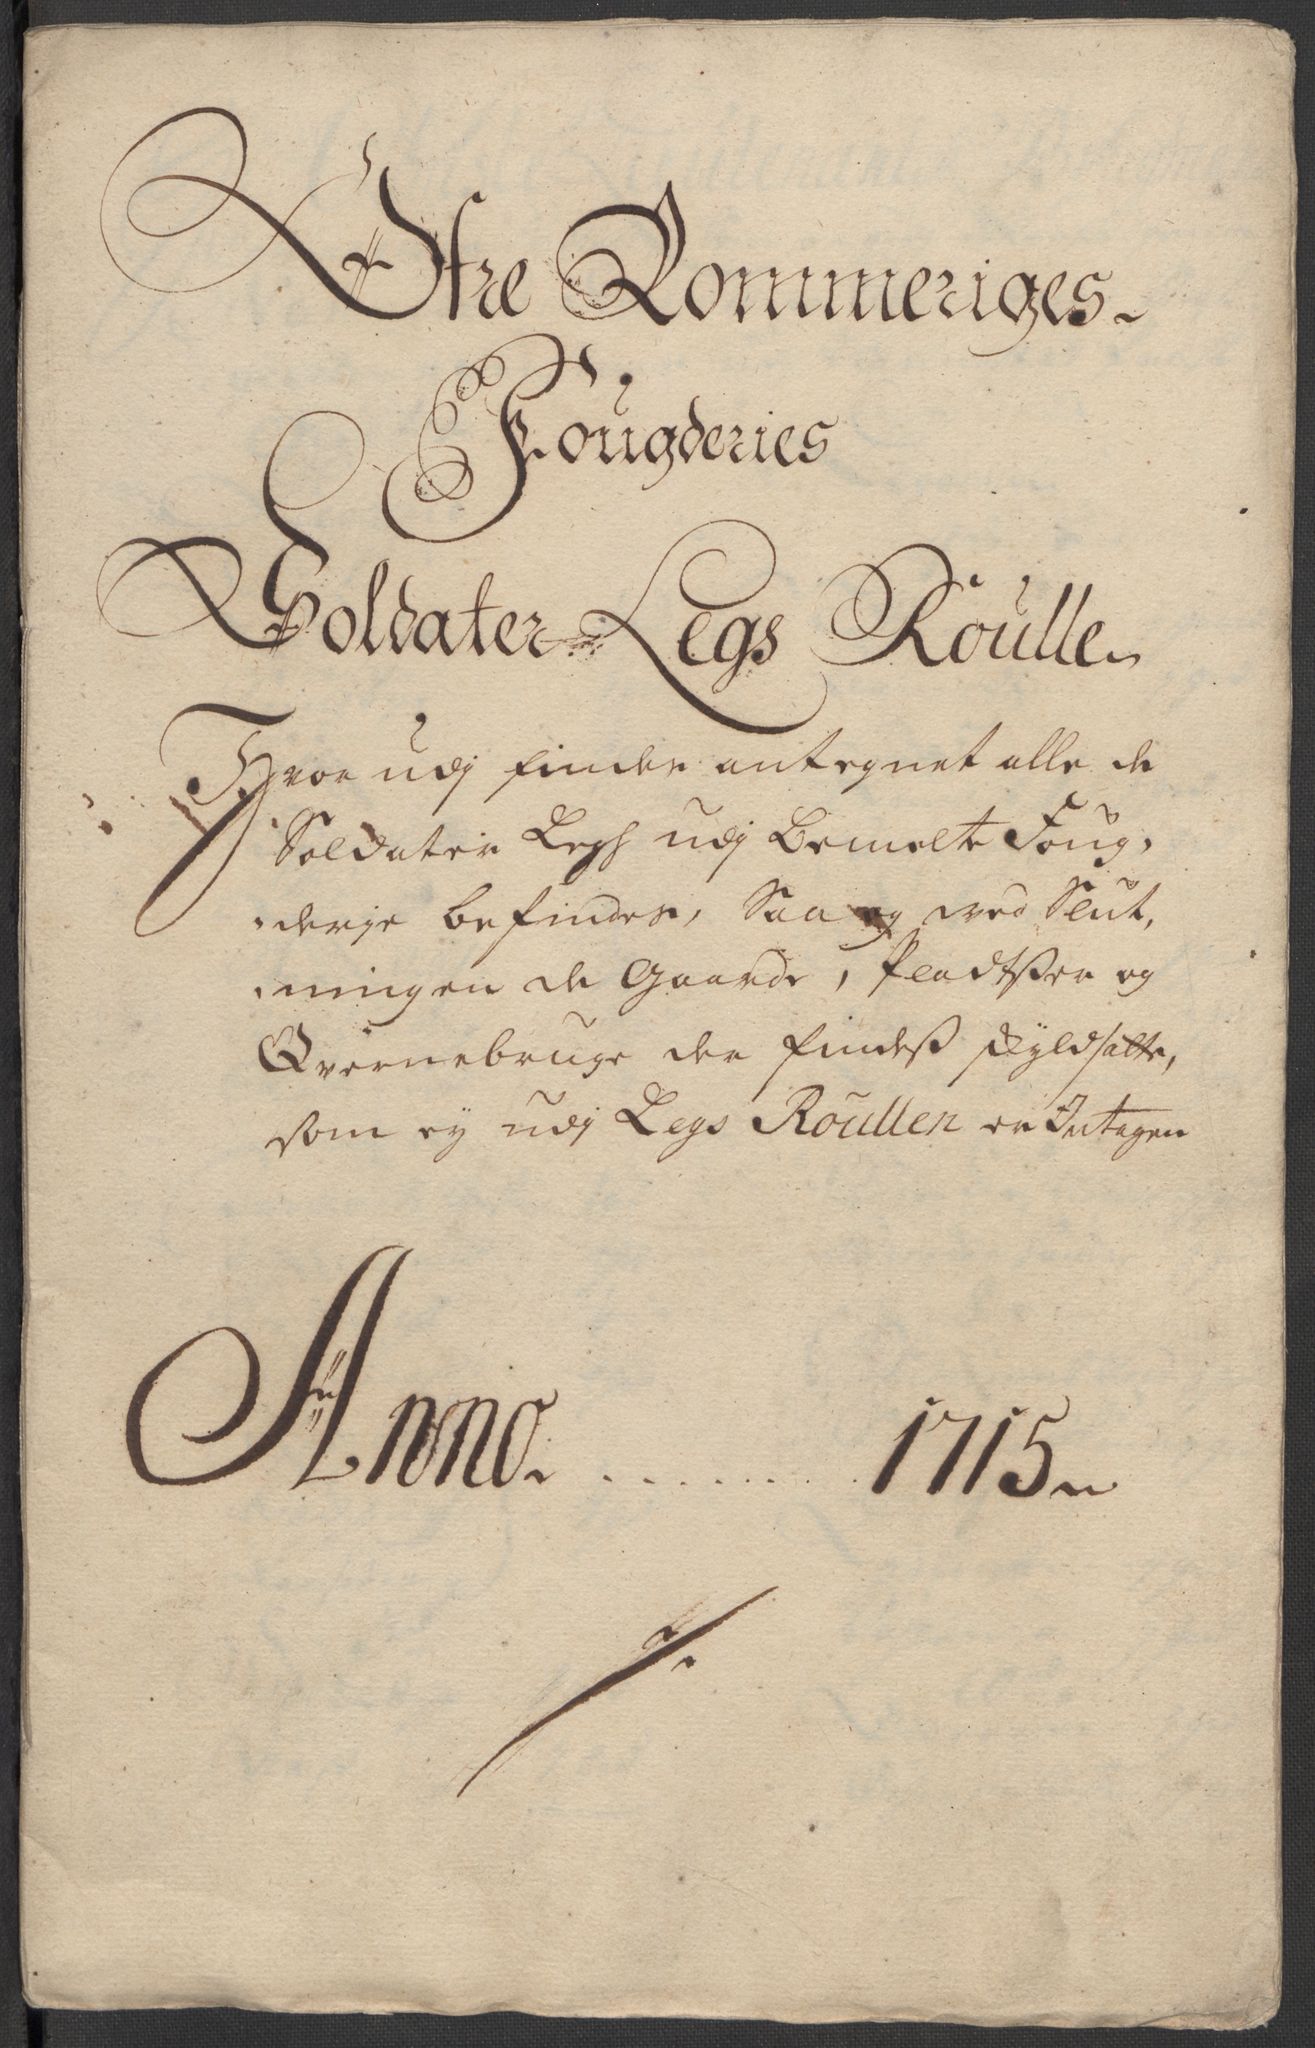 Øfre Rommeriges
Fougderies
Soldater Legs Roulle
Hvor udj findes antegnet alle de
Soldater Legs udj Bemelte Foug-
derje befindes, Saa og ved Slut-
ningen de Gaarde, Pladtzer og
Qvernebruge der findeß skyldsatte,
som ey udj Legs Roullen er Intagen
Anno ........ 1715